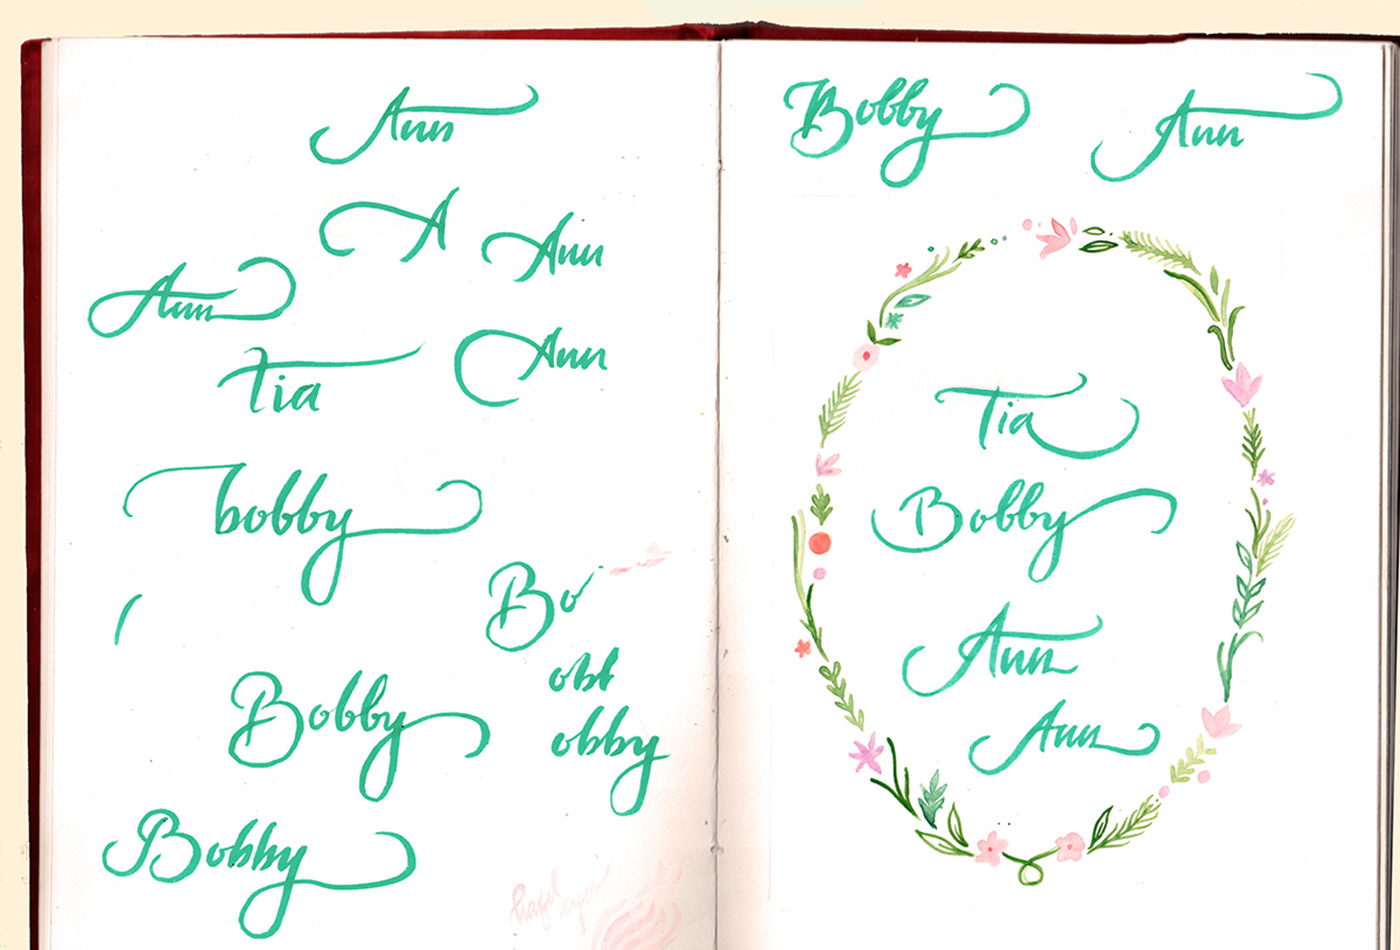 Ann
A
Ann
Ann
Ann
Tia
bobby
Bo
obb
Bobby
obby
Bobby
hazel eyes
Bobby Ann
Tia
Bobby
Ann
Ann